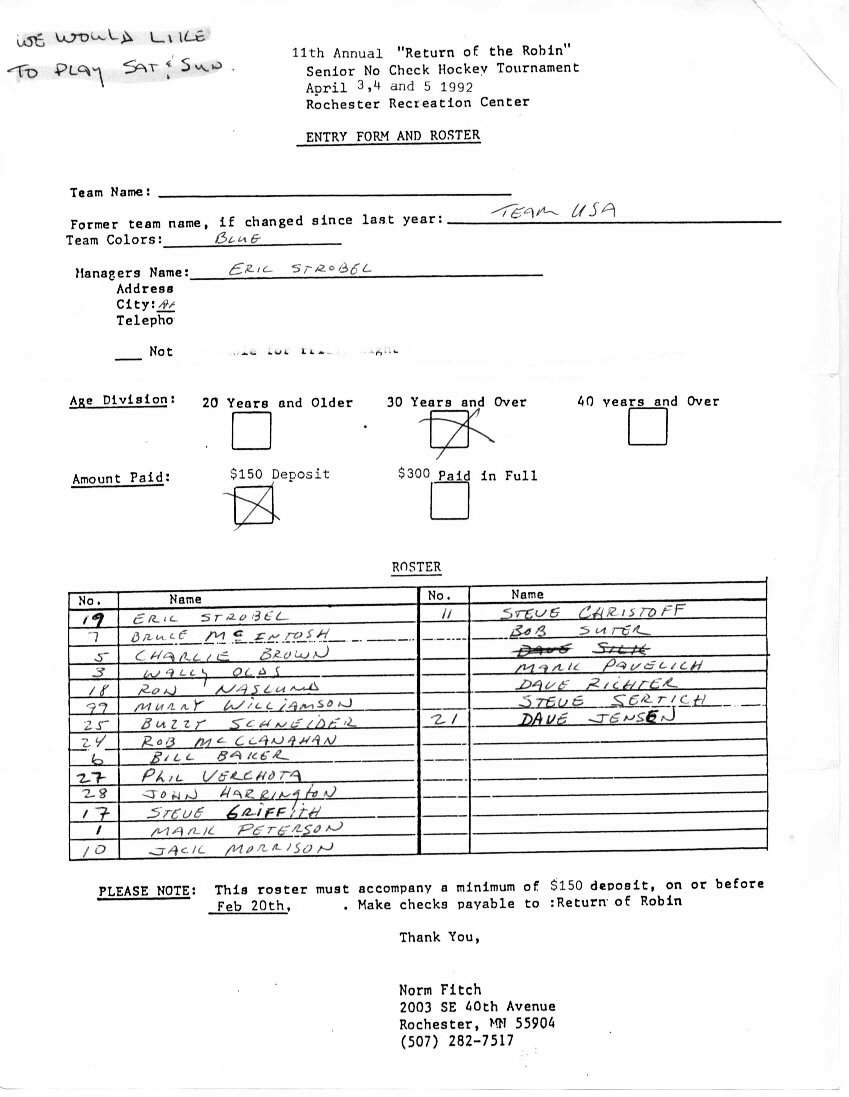 WE WOULD LIKE
TO PLAY SAT & SUN.
11th Annual "Return of the Robin"
Senior No Check Hockey Tournament
April 3,4 and 5 1992
Rochester Recreation Center
ENTRY FORM AND ROSTER
Team Name:
Former team name, if changed since last year: TEAM USA
Team Colors: BLUE
Managers Name: ERIC STROBEL
Address
City:
Telepho
Not
Age Division: 20 Years and Older 30 Years and Over 40 years and Over
Amount Paid: $150 Deposit $300 Paid in Full
ROSTER
No. Name No. Name
19 ERIC STROBEL 11 STEVE CHRISTOFF
7 BRUCE McINTOSH BOB SUTER
5 CHARLIE BROWN
3 WALLY OLDS MARK PAVELICH
18 RON NASLUND DAVE RICHTER
99 MURRY WILLIAMSON STEVE SERTICH
25 BUZZY SCHNEIDER 21 DAVE JENSEN
24 ROB McCLANAHAN
6 BILL BAKER
27 PHIL VERCHOTA
28 JOHN HARRINGTON
17 STEVE GRIFFITH
1 MARK PETERSON
10 JACK MORRISON
PLEASE NOTE: This roster must accompany a minimum of $150 deposit, on or before
Feb 20th, . Make checks payable to :Return of Robin
Thank You,
Norm Fitch
2003 SE 40th Avenue
Rochester, MN 55904
(507) 282-7517